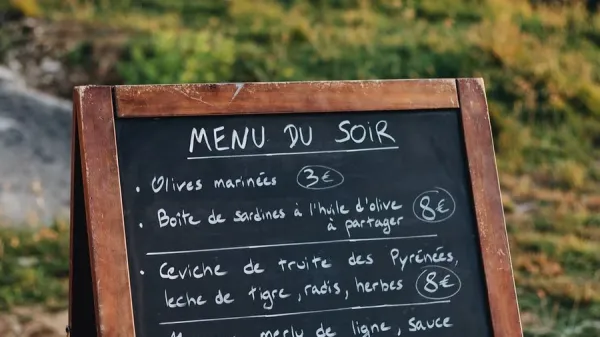 MENU DU SOIR
• Olives marinées 3€
• Boîte de sardines à l'huile d'olive
à partager 8€
• Ceviche de truite des Pyrénées,
leche de tigre, radis, herbes 8€
merlu de ligne, sauce